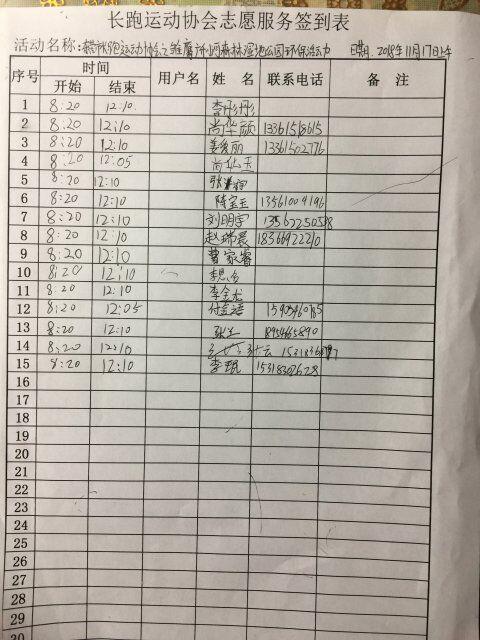 长跑运动协会志愿服务签到表
活动名称: 长跑运动协会之 河 森林湿地公园环保活动 日期: 2018年11月17日上午
序号 时间 用户名 姓 名 联系电话 备 注
开始 结束
1 8:20 12:10 李彤彤
2 8:20 12:10 尚华颜 13361518615
3 8:20 12:10 姜爱丽 13361502776
4 8:20 12:05 尚华玉
5 8:20 12:10 张
6 8:20 12:10 陈宝玉 13561004196
7 8:20 12:10 刘明宇
8 8:20 12:10 赵瑞晨 18366922210
9 8:20 12:10 曹家睿
10 8:20 12:10 李
11 8:20 12:10 李金龙
12 8:20 12:05
13 8:20 12:10 张 18954665890
14 8:20 12:10
15 8:20 12:10 李琨 15318302628
16
17
18
19
20
21
22
23
24
25
26
27
28
29
30